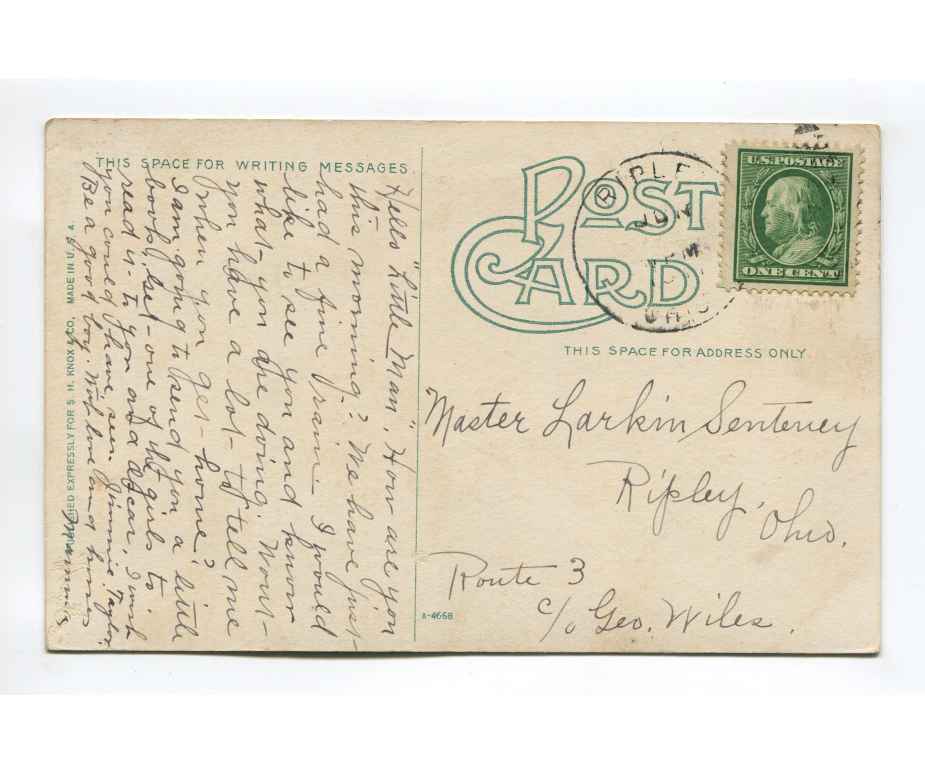 THIS SPACE FOR WRITING MESSAGES.
Hello "Little Man", How are you
this morning? We have just
had a fine rain. I would
like to see you and know
what you are doing. Wont
you have a lot to tell me
when you get home?
I am going to send you a little
book, get one of the girls to
read it to you and Oscar, I wish
you could have seen Jimmie Taylor.
Be a good boy. With love and kisses
PUBLISHED EXPRESSLY FOR S. H. KNOX & CO. MADE IN U. S. A.
POST CARD
RIPLE
OHIO
U.S. POSTAGE
ONE CENT
THIS SPACE FOR ADDRESS ONLY.
Master Larkin Senteney
Ripley,
Ohio.
Route 3
c/o Geo. Wiles.
A-4668